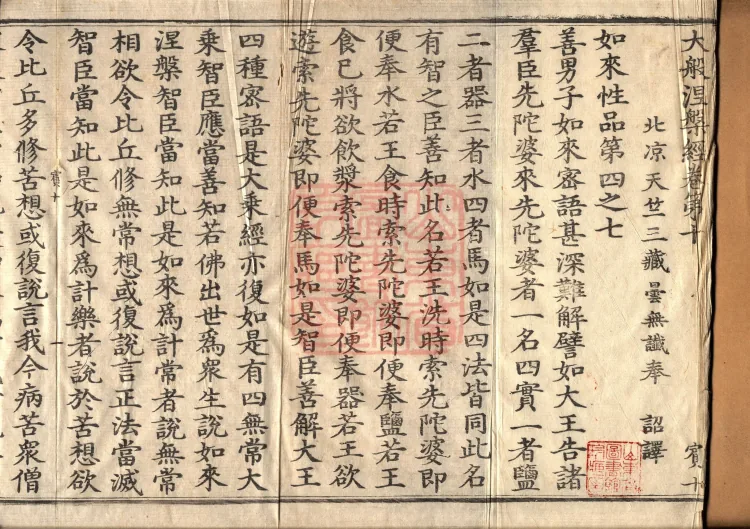 大般涅槃經卷第十 賓十
北涼天竺三藏曇無讖奉 詔譯
如來性品第四之七
善男子如來密語甚深難解譬如大王告諸
羣臣先陀婆來先陀婆者一名四實一者鹽
二者器三者水四者馬如是四法皆同此名
有智之臣善知此名若王洗時索先陀婆即
便奉水若王食時索先陀婆即便奉鹽若王
食已將欲飲漿索先陀婆即便奉器若王欲
遊索先陀婆即便奉馬如是智臣善解大王
四種密語是大乘經亦復如是有四無常大
乘智臣應當善知若佛出世爲衆生說如來
涅槃智臣當知此是如來爲計常者說無常
相欲令比丘修無常想或復說言正法當滅
智臣當知此是如來爲計樂者說於苦想欲
賓十 一
令比丘多修苦想或復說言我今病苦衆僧